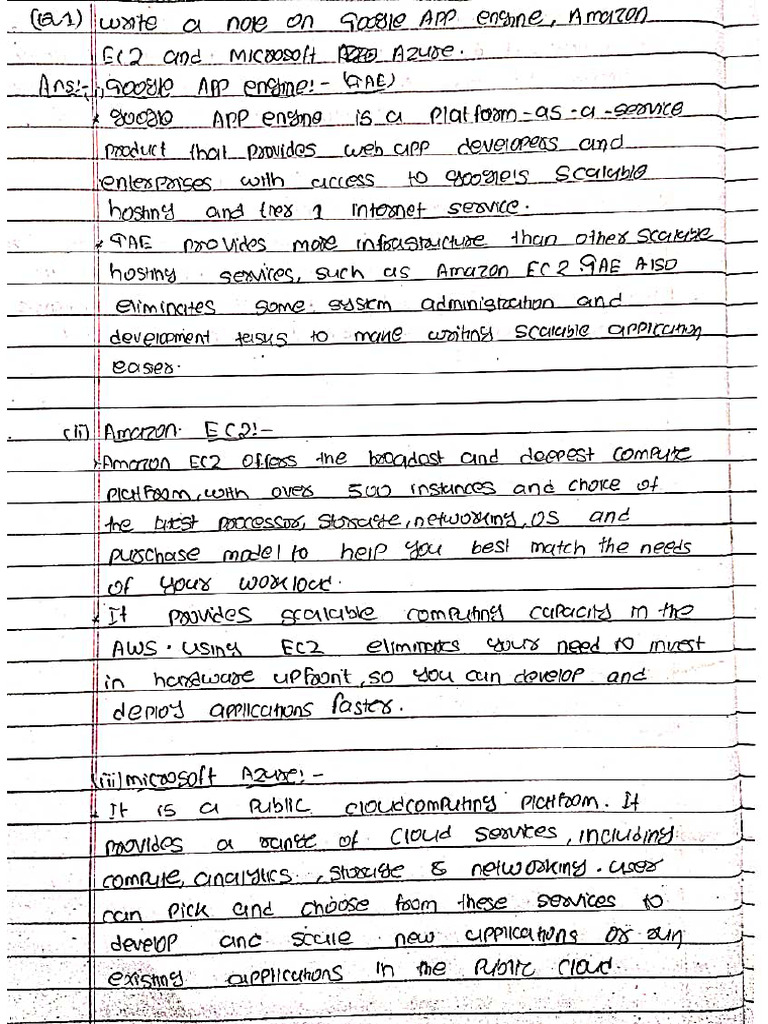 (Q.1) write a note on Google APP engine, Amazon
EC2 and Microsoft Azure.
Ans:- (i) Google APP engine:- (GAE)
* google APP engine is a Platform-as-a-service
product that provides web app developers and
enterprises with access to google's scalable
hosting and tier 1 internet service.
* GAE provides more infrastructure than other scalable
hosting services, such as Amazon EC2. GAE Also
eliminates some system administration and
development tasks to make writing scalable application
easer.
(ii) Amazon EC2:-
* Amazon EC2 offers the broadast and deepest compute
platform, with over 500 instances and choice of
the latest processor, storage, networking, OS and
purchase model to help you best match the needs
of your workload.
* It provides scalable computing capacity in the
AWS. using EC2 eliminates your need to invest
in hardware upfront, so you can develop and
deploy applications faster.
(iii) microsoft Azure:-
* It is a Public cloud computing platfrom. It
provides a range of cloud services, including
compute, analytics, storage & networking. user
can pick and choose from these services to
develop and scale new applications or run
existing applications in the Public cloud.